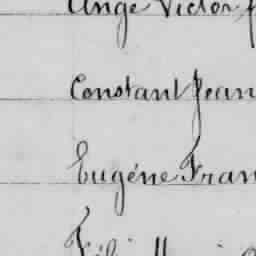 Ange Victor
Constant Jean
Eugéne Fran